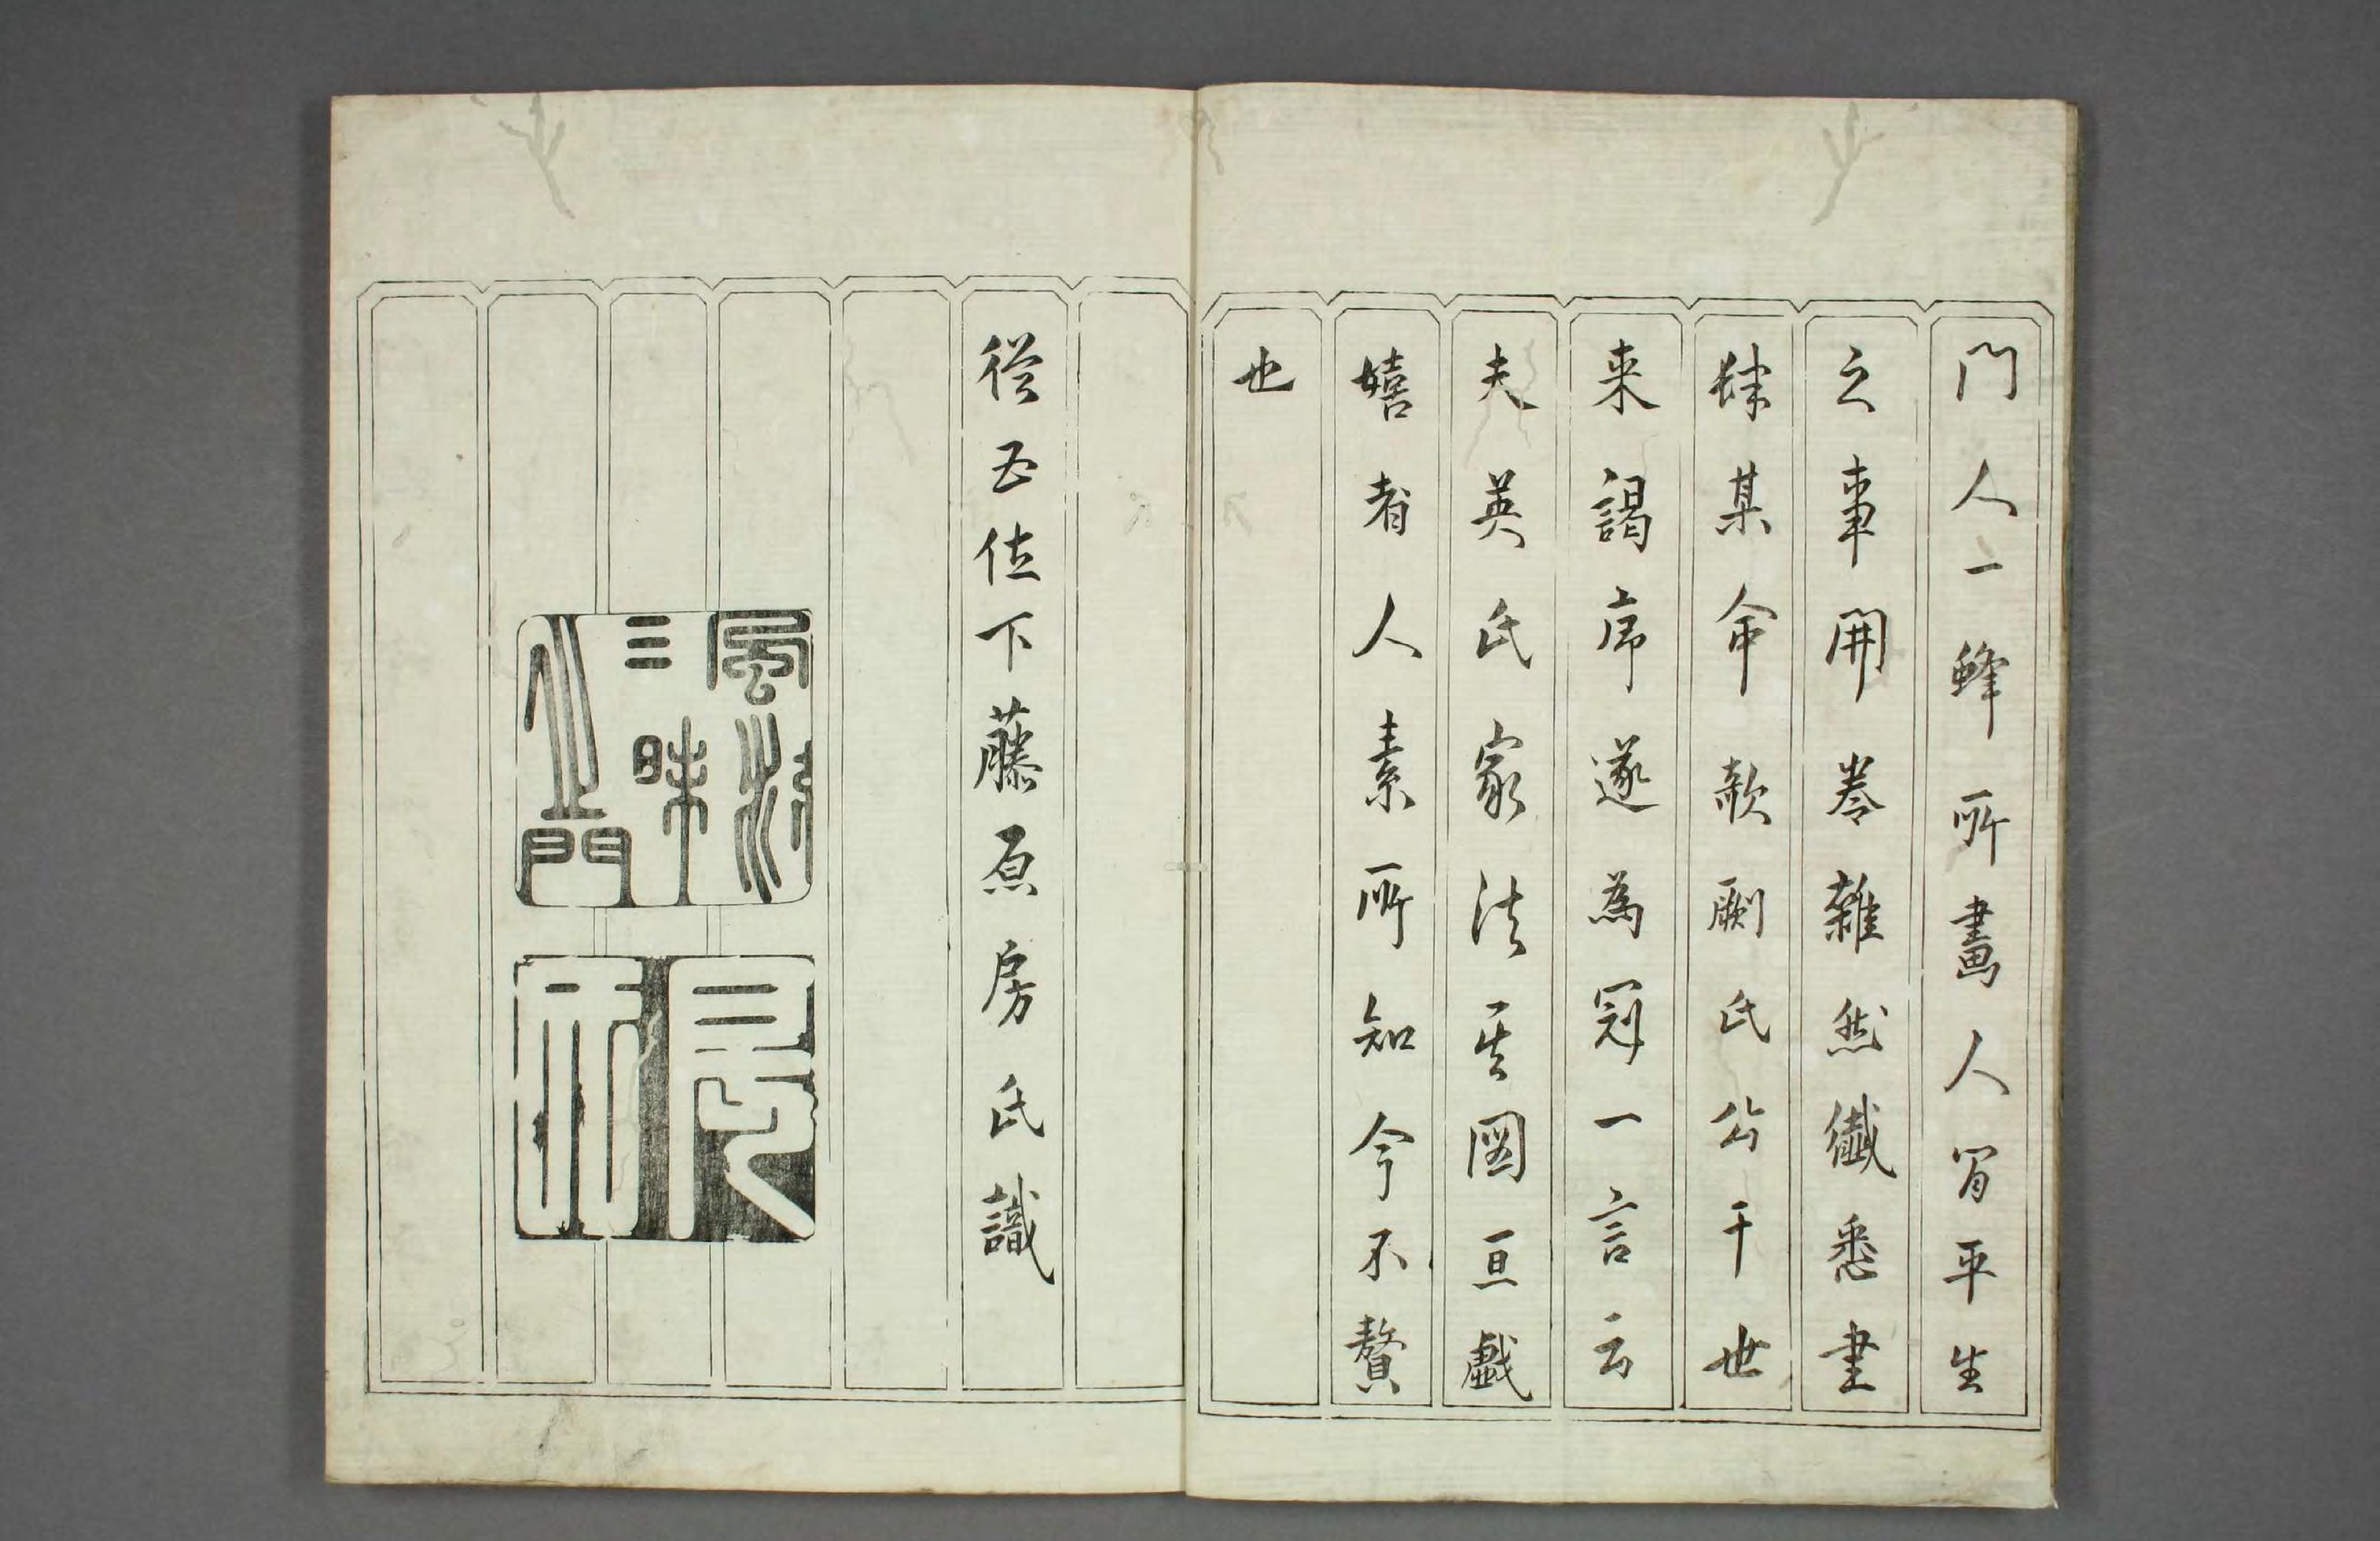 門人一蜂所畫人間平生
之事開卷雜然纖悉書
肆某命欹劂氏公于世
来謁序遂為冠一言云
夫英氏家法其圖亘戯
嬉者人素所知今不贅
也
從五位下藤原房氏識
風流
三昧
門